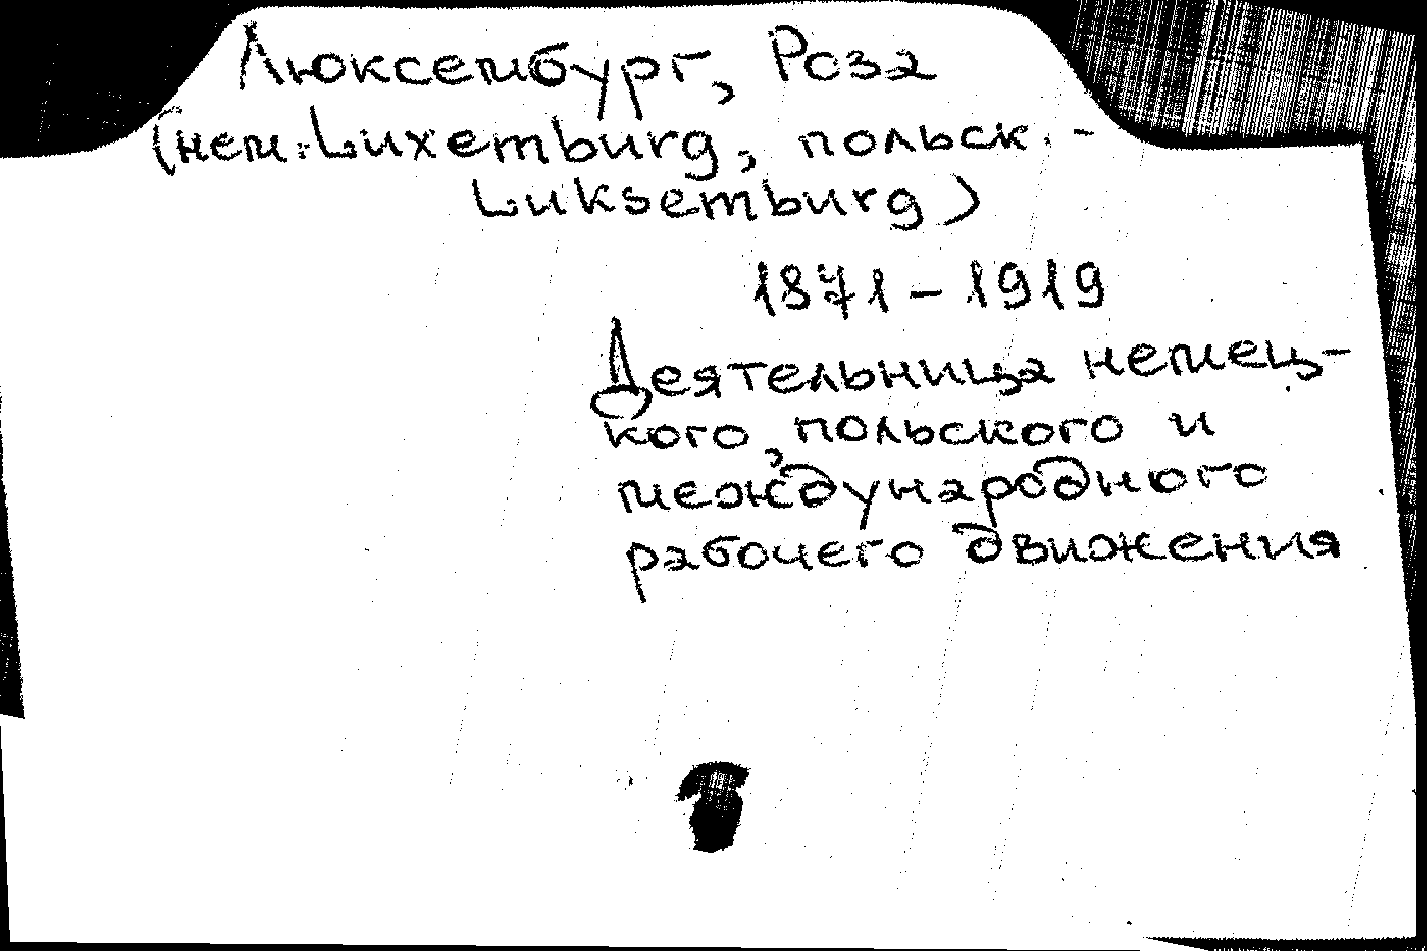 Люксембург, Роза
(нем. Luxemburg, польск. -
Luksemburg)
1871-1919
Деятельница немец-
кого, польского и
международного
рабочего движения